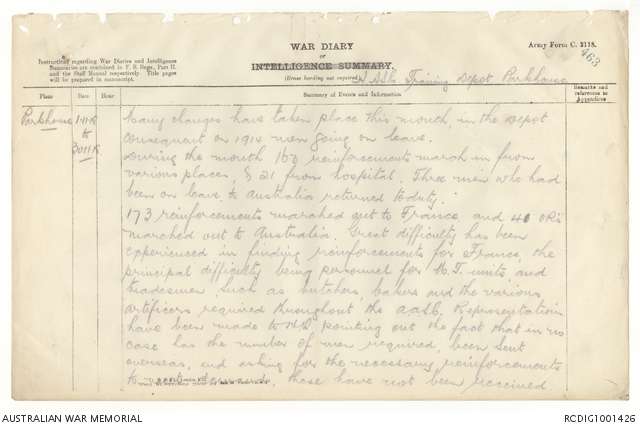 WAR DIARY
or
INTELLIGENCE SUMMARY.
(Erase heading not required)
Army Form C. 2118.
463
Instructions regarding War Diaries and Intelligence
Summaries are contained in F. S. Regs., Part II.
and the Staff Manual respectively. Title pages
will be prepared in manuscript.
Training Depot, Parkhouse
Place
Date
Hour
Summary of Events and Information
Remarks and
references to
Appendices
Parkhouse
to
Many changes have taken place this month, in the Depot
consequent on 1914 men going on leave.
During the month 160 reinforcements march in from
various places, & 21 from hospital. Three men who had
been on leave to Australia returned to duty.
173 reinforcements marched out to France, and 40 ORs
marched out to Australia. Great difficulty has been
experienced in finding reinforcements for France, the
principal difficulty being personnel for M.T. units and
tradesmen, such as butchers, bakers and the various
artificers required throughout the AASC. Representation
have been made to HQ. pointing out the fact that in no
case has the number of men required, been sent
overseas, and asking for the necessary reinforcements
to demands, these have not been received
AUSTRALIAN WAR MEMORIAL
RCDIG1001426